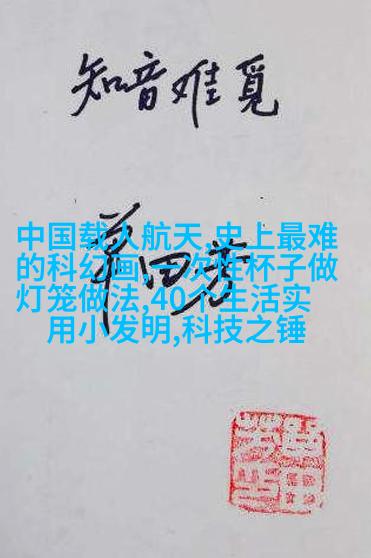 知音难觅
单田芳
中国载人航天,史上最难
的科幻画,一次性杯子做
灯笼做法,40个生活实
用小发明,科技之锤